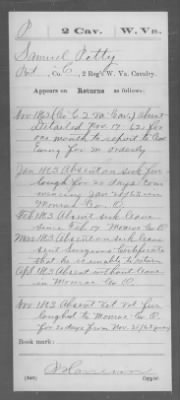 P 2 Cav. W. Va.
Samuel Petty
Pvt., Co. C, 2 Reg't W. Va. Cavalry.
Appears on Returns as follows:
Nov 1862 (Co. C 2 W. Va. Cav.) Absent
Detailed Nov. 17 62, for
one month to report to Co
Ewing for an orderly
Jan 1863 Absent on sick fur
lough for 20 days com
mencing Jan 20, 1863 in
Monroe Co. O.
Feb 1863 Absent sick leave
since Feb 17 Monroe Co. O
Mar 1863 Absent on sick leave
sent Surgeons Certificate
that he is unable to return
Apl 1863 Absent without leave
in Monroe Co. O.
Nov 1863 Absent Vet. Vol. fur
loughed to Monroe Co. O.
for 20 days from Nov. 21/63
Book mark:
Copyist.